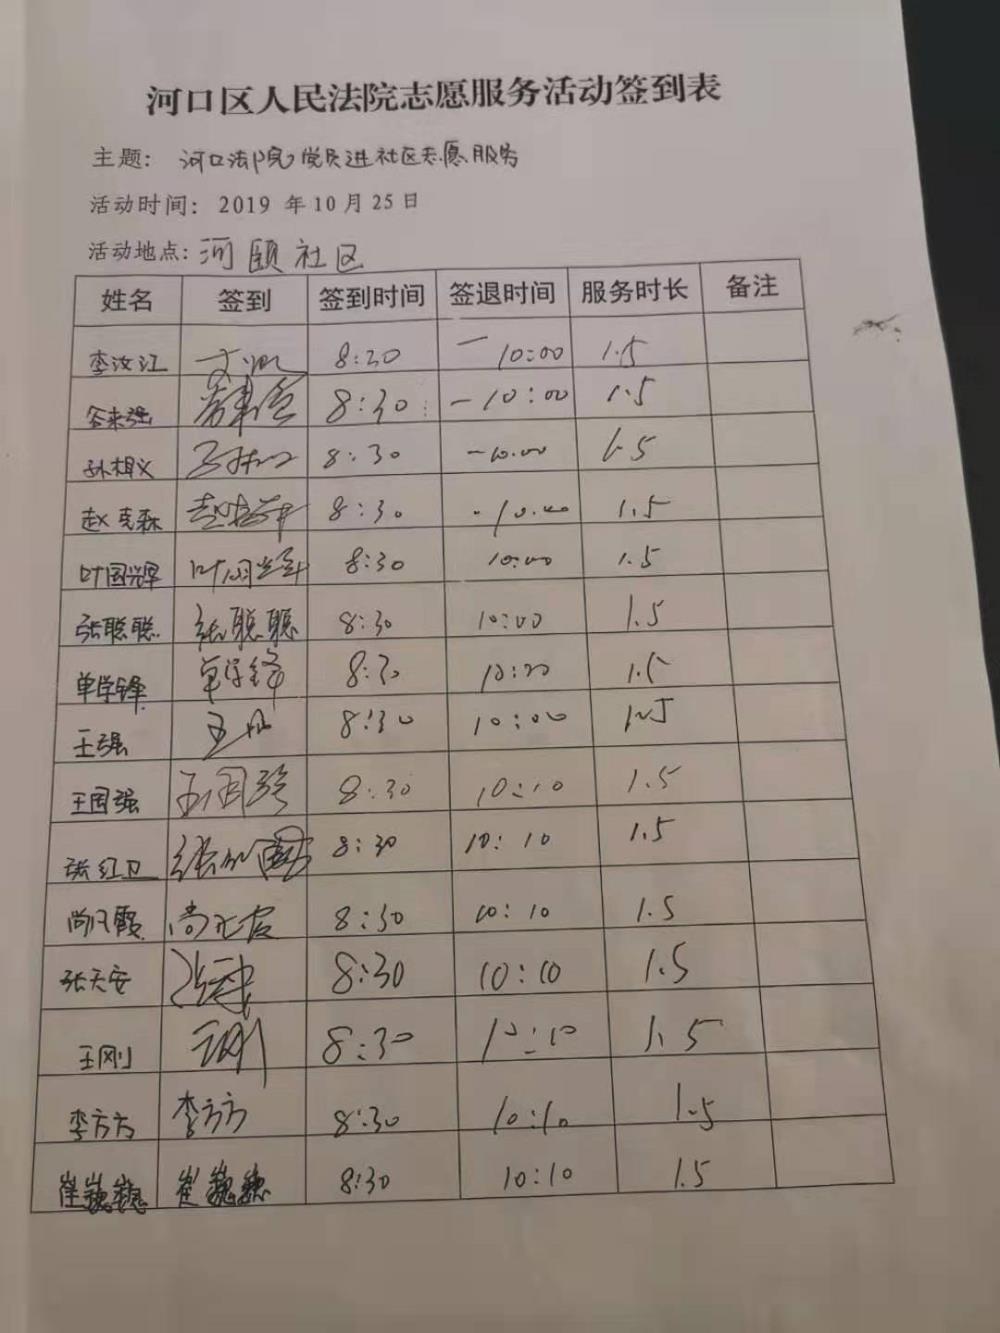 河口区人民法院志愿服务活动签到表
主题： 河口法院党员进社区志愿服务
活动时间： 2019 年 10 月 25 日
活动地点：河颐社区
姓名 签到 签到时间 签退时间 服务时长 备注
李汝江 8:30 10:00 1.5
8:30 10:00 1.5
孙相义 8:30 10:00 1.5
赵克森 8:30 10:00 1.5
叶国辉 叶国辉 8:30 10:00 1.5
张聪聪 张聪聪 8:30 10:00 1.5
单学锋 单学锋 8:30 10:00 1.5
王强 8:30 10:00 1.5
王国强 王国强 8:30 10:10 1.5
张红卫 8:30 10:10 1.5
尚凡霞 8:30 10:10 1.5
张天安 8:30 10:10 1.5
王刚 王刚 8:30 10:10 1.5
李方方 李方方 8:30 10:10 1.5
崔巍巍 崔巍巍 8:30 10:10 1.5